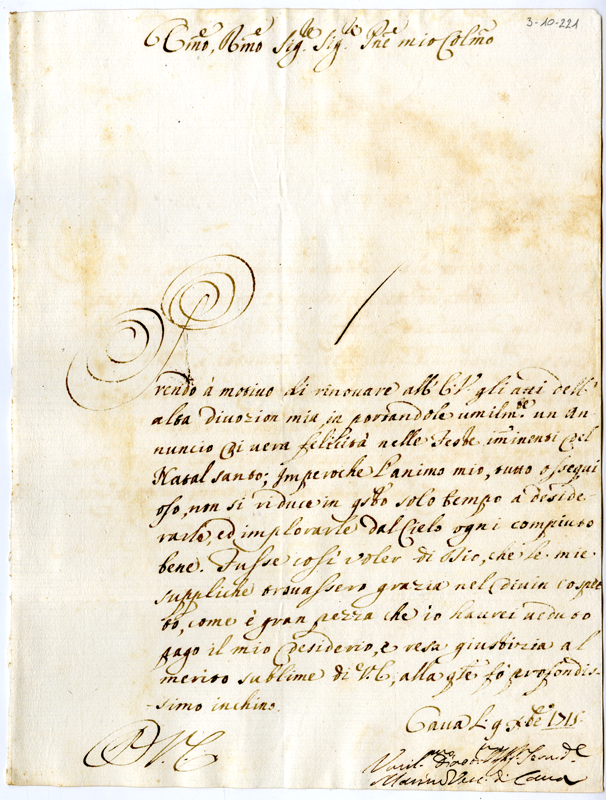 3-10-221
Emo, Rmo Sigr Sigr Pne mio Colmo
Prendo à motivo di rinovare all' E.V. gli atti dell'
alta divozion mia in portandole umilmte un An
nuncio di vera felicità nelle feste imminenti del
Natal santo; Imperoche l'animo mio, tutto ossequi
oso, non si riduce in qsto solo tempo à deside-
rarle, ed implorarle dal Cielo ogni compiuto
bene. Fusse così voler di Dio, che le mie
suppliche trovassero grazia nel divin cospet
to, come è gran pezza che io haurei veduto
pago il mio desiderio, e resa giustizia al
merito sublime di V.E., alla qle fò profondis-
simo inchino.
Cava li 9 Xbre 1715.
D V. E.
Umil. Servre
Marino Vesc. di Cava